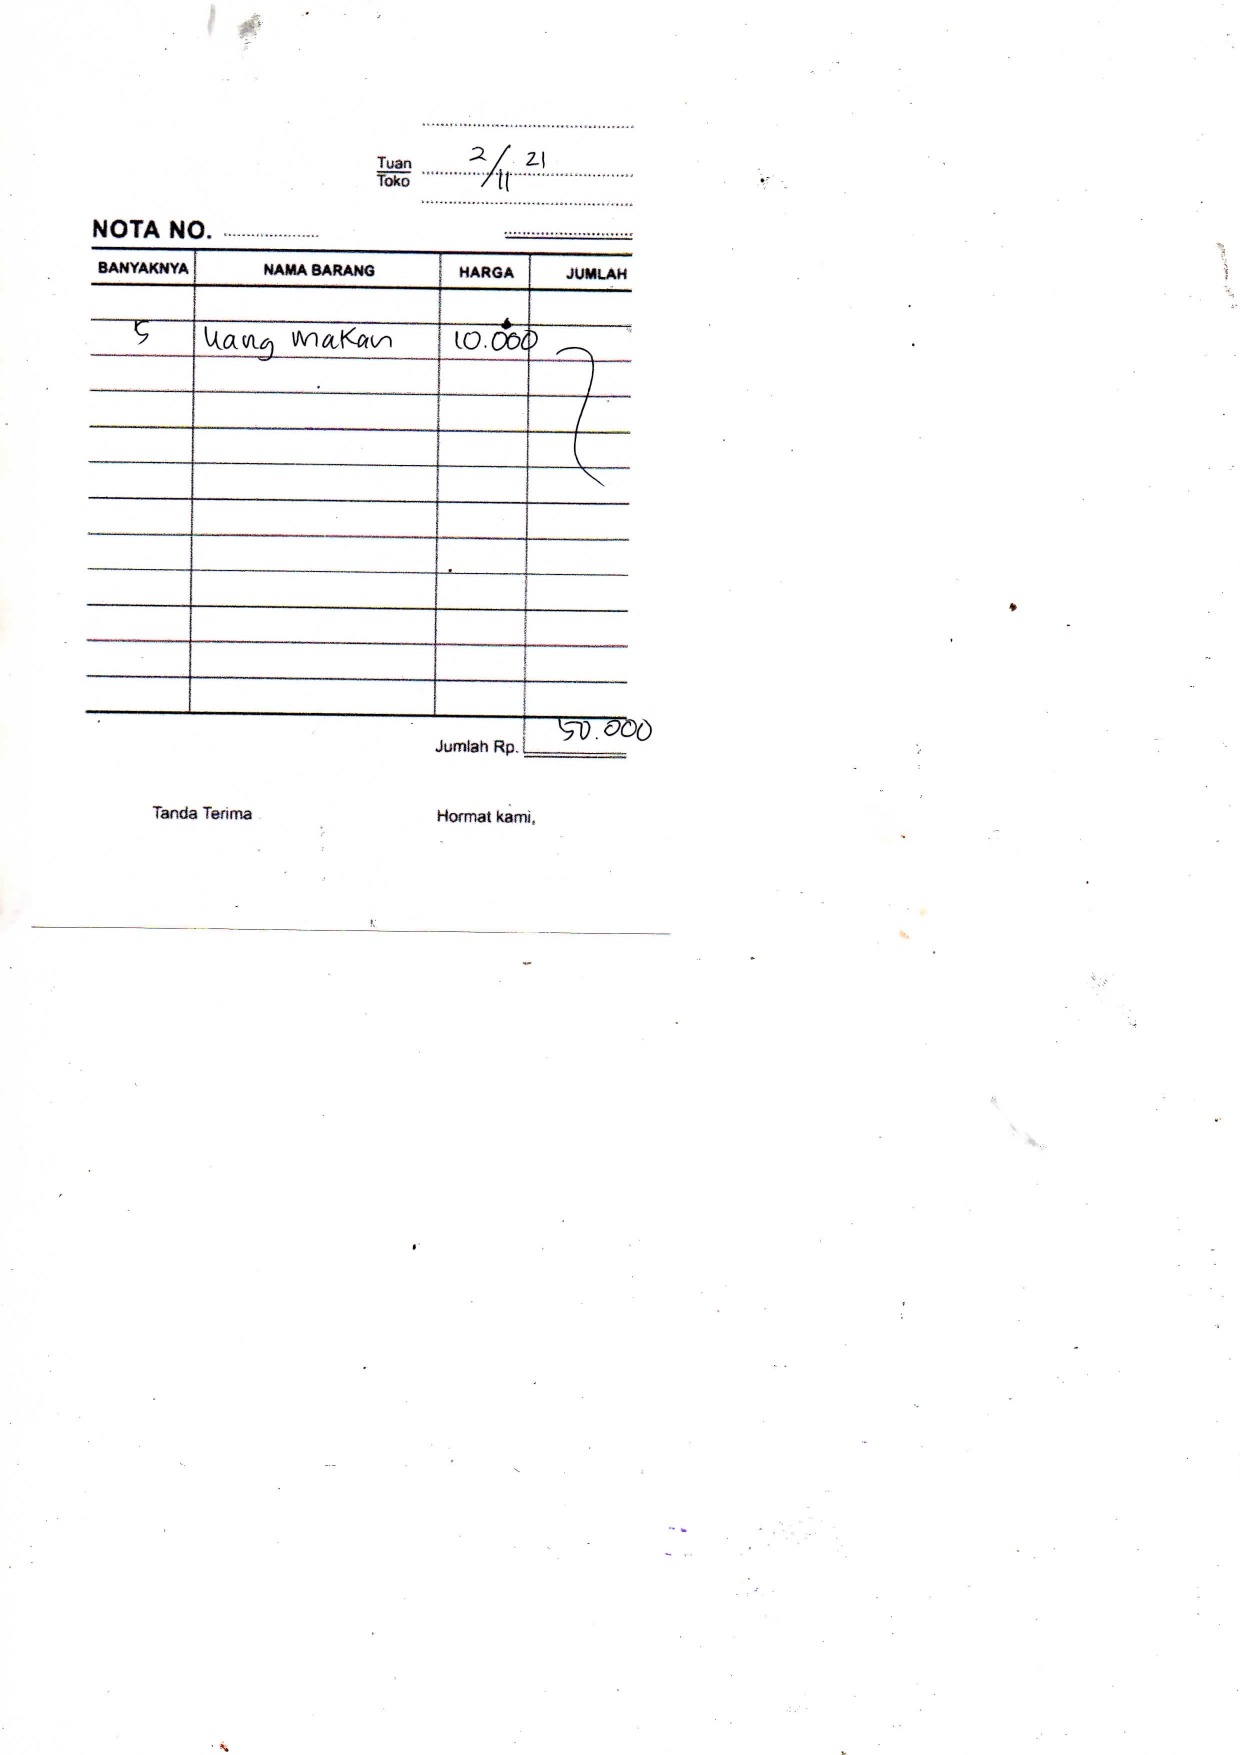 2/11 21
Tuan
Toko
NOTA NO. ....................
BANYAKNYA NAMA BARANG HARGA JUMLAH
5 Uang makan 10.000
Jumlah Rp. 50.000
Tanda Terima Hormat kami,